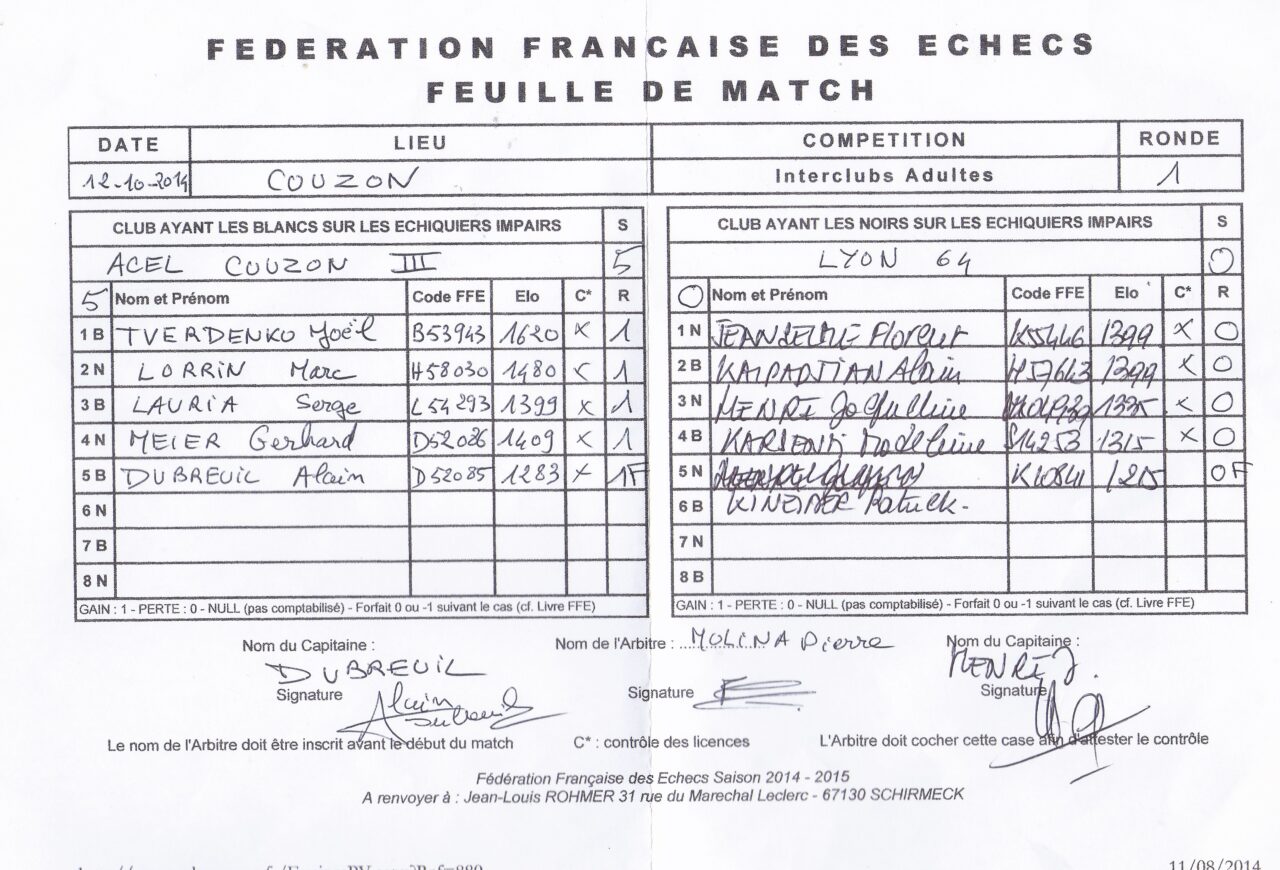 FEDERATION FRANCAISE DES ECHECS
FEUILLE DE MATCH
DATE LIEU COMPETITION RONDE
12-10-2014 COUZON Interclubs Adultes 1
CLUB AYANT LES BLANCS SUR LES ECHIQUIERS IMPAIRS S
ACEL COUZON III 5
5 Nom et Prénom Code FFE Elo C* R
1 B TVERDENKO Joël B53943 1620 x 1
2 N LORRIN Marc H58030 1480 x 1
3 B LAURIA Serge L54293 1399 x 1
4 N MEIER Gerhard D52086 1409 x 1
5 B DUBREUIL Alain D52085 1283 x 1F
6 N
7 B
8 N
GAIN : 1 - PERTE : 0 - NULL (pas comptabilisé) - Forfait 0 ou -1 suivant le cas (cf. Livre FFE)
CLUB AYANT LES NOIRS SUR LES ECHIQUIERS IMPAIRS S
LYON 64 0
0 Nom et Prénom Code FFE Elo C* R
1 N Florent 1399 x 0
2 B Alain H57643 1399 x 0
3 N HENRI Jacqueline 1335 x 0
4 B Madeleine S14253 1315 x 0
5 N 1215 0F
6 B Patrick.
7 N
8 B
GAIN : 1 - PERTE : 0 - NULL (pas comptabilisé) - Forfait 0 ou -1 suivant le cas (cf. Livre FFE)
Nom du Capitaine : Nom de l'Arbitre : MOLINA Pierre Nom du Capitaine :
DUBREUIL HENRI J.
Signature Signature Signature
Alain Dubreuil
Le nom de l'Arbitre doit être inscrit avant le début du match C* : contrôle des licences L'Arbitre doit cocher cette case afin d'attester le contrôle
Fédération Française des Echecs Saison 2014 - 2015
A renvoyer à : Jean-Louis ROHMER 31 rue du Marechal Leclerc - 67130 SCHIRMECK
11/08/2014